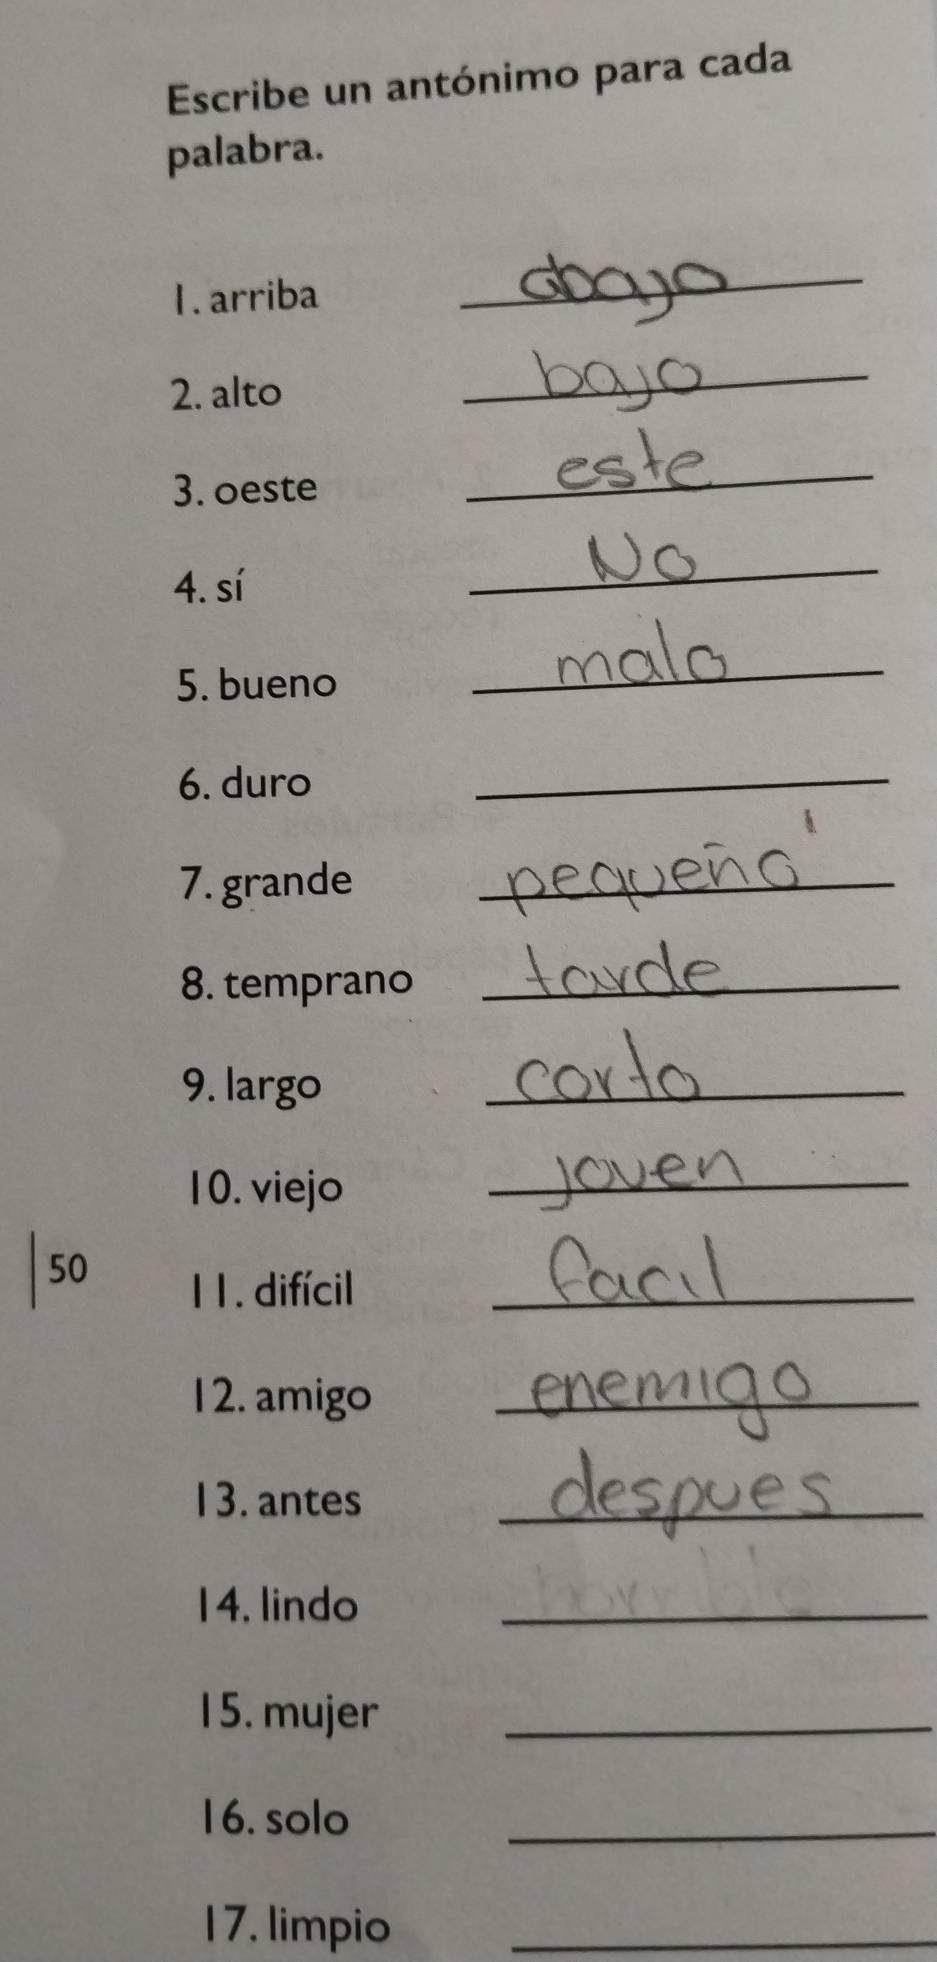 Escribe un antónimo para cada
palabra.
1. arriba abajo
2. alto bajo
3. oeste este
4. sí No
5. bueno malo
6. duro
7. grande pequeño
8. temprano tarde
9. largo corto
10. viejo joven
50
11. difícil facil
12. amigo enemigo
13. antes despues
14. lindo horrible
15. mujer
16. solo
17. limpio